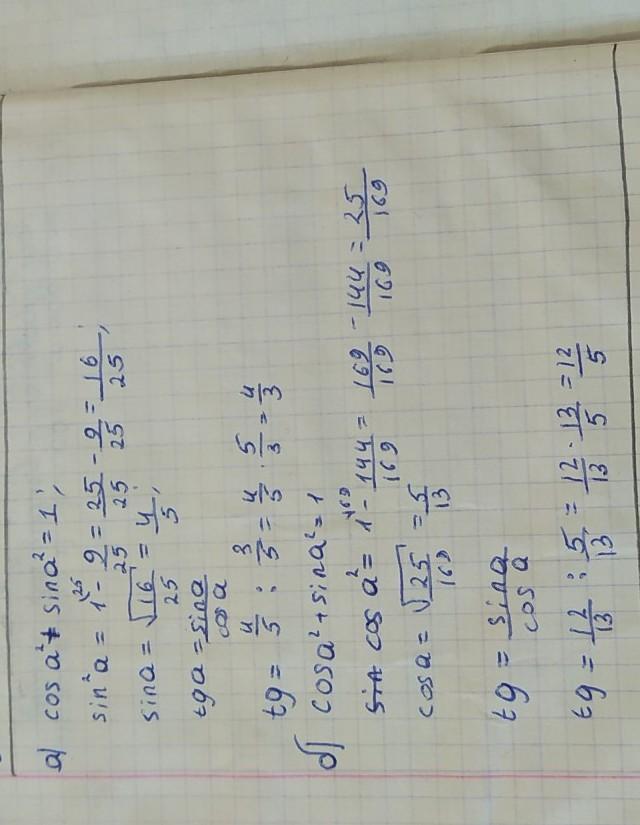 а) cos a² + sin a² = 1;
sin² a = 1²⁵ - 9/25 = 25/25 - 9/25 = 16/25;
sin a = √16/25 = 4/5;
tg a = sin a/cos a
tg = 4/5 : 3/5 = 4/5 · 5/3 = 4/3
б) cos a² + sin a² = 1
cos a² = 1¹⁶⁹ - 144/169 = 169/169 - 144/169 = 25/169
cos a = √25/169 = 5/13
tg = sin a/cos a
tg = 12/13 : 5/13 = 12/13 · 13/5 = 12/5